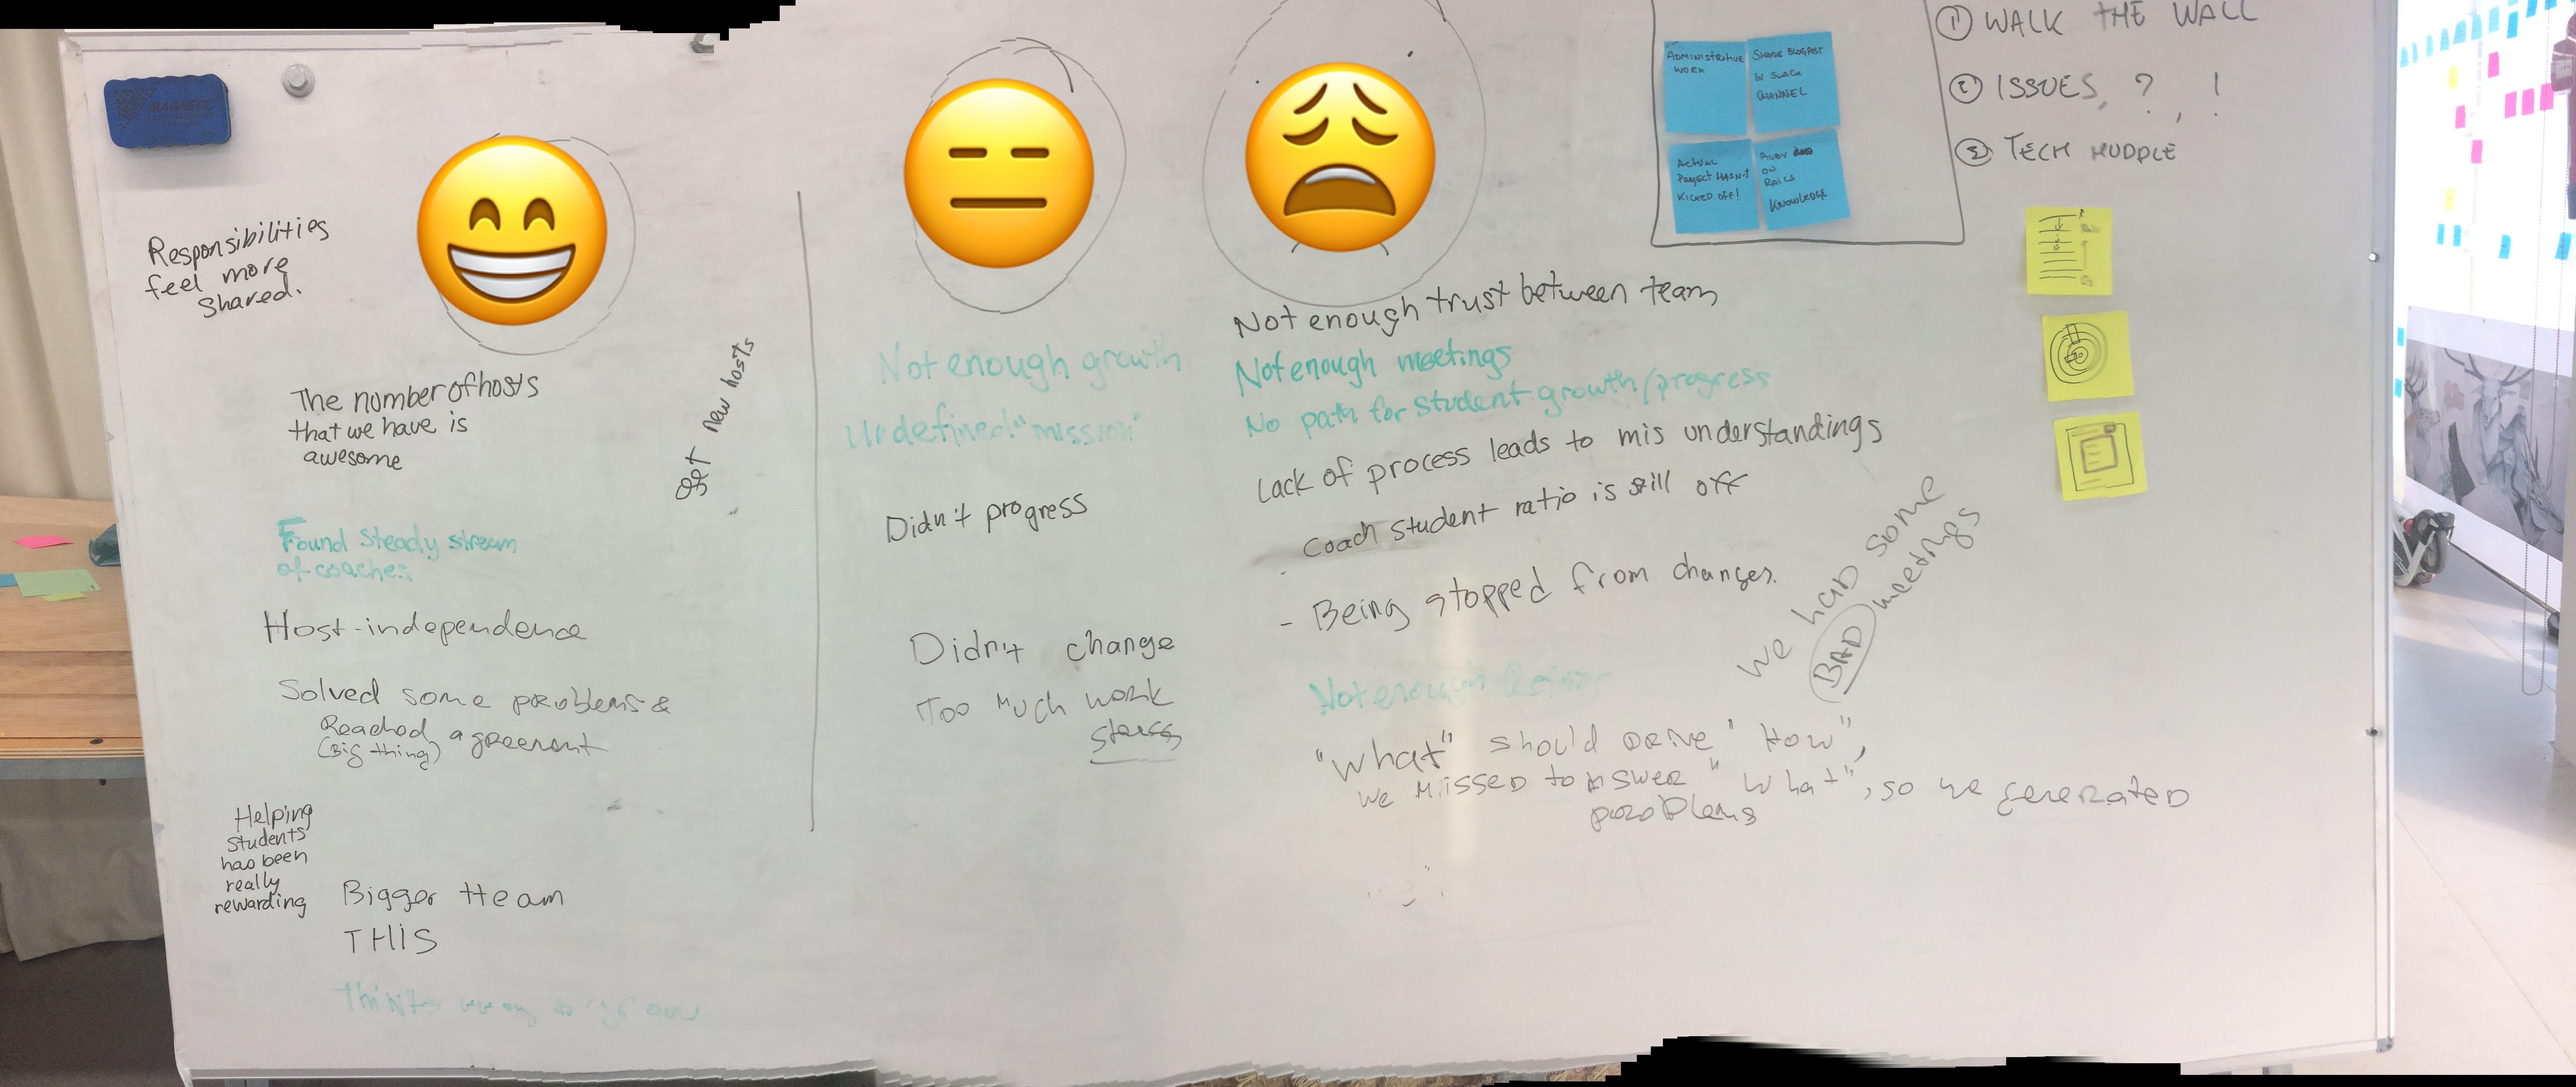 Responsibilities
feel more
shared.
The number of hosts
that we have is
awesome
got new hosts
Found Steady stream
of coaches
Host-independence
Solved some problems &
Reached agreement
(Big thing)
Helping
students
has been
really
rewarding
Bigger team
THIS
Not enough growth
Undefined "mission"
Didn't progress
Didn't change
Too much work
Not enough trust between team
Not enough meetings
No path for student growth/progress
Lack of process leads to mis understandings
- Coach student ratio is still off
- Being stopped from changes.
we had some
BAD meetings
Not enough
"What" should drive "How",
we missed to answer "what", so we generated
problems
ADMINISTRATIVE
WORK
SHARE BLOGPOST
IN SLACK
CHANNEL
ACTUAL
PROJECT HASN'T
KICKED OFF!
RUBY
ON
RAILS
KNOWLEDGE
① WALK THE WALL
② ISSUES, ?, !
③ TECH HUDDLE